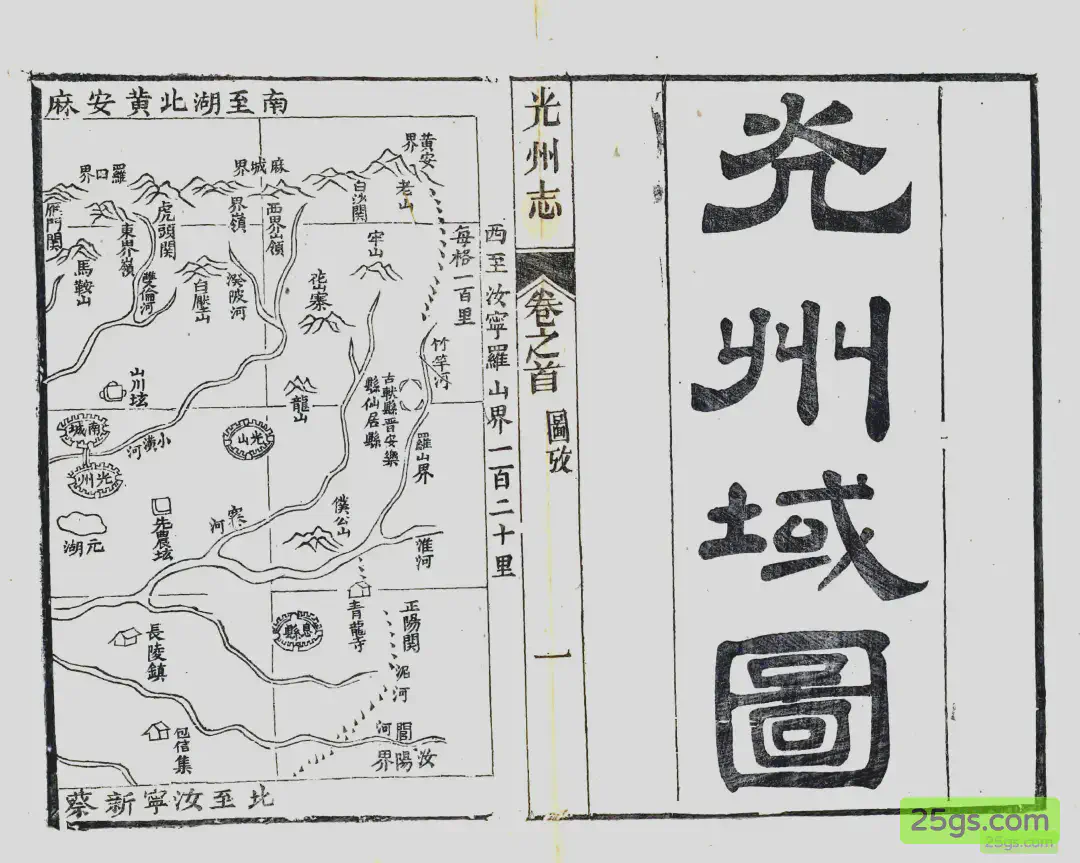 光州域圖
光州志
卷之首
圖攷
一
南至湖北黃安麻
西至汝寧羅山界一百二十里
每格一百里
北至汝寧新蔡
黃安界
老山
白沙關
麻城界
西界嶺
界嶺
羅田界
虎頭關
東界嶺
雁門關
馬鞍山
雙僑河
白壓山
潑陂河
牢山
㟃寨
竹竿河
山川坛
龍山
古軑縣晉安樂
縣仙居縣
羅山界
南城
光山
小潢河
光州
先農坛
元湖
寨河
僕公山
淮河
青龍寺
正陽關
息縣
長陵鎮
泥河
包信集
閭河
汝陽界
25gs.com
25gs.com